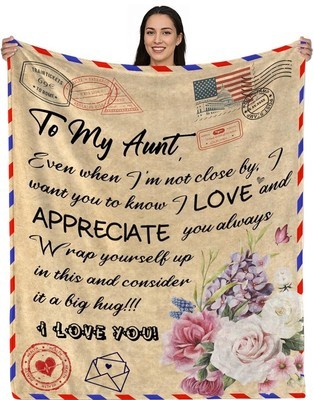 To My Aunt,
Even when I'm not close by, I
want you to know I LOVE and
APPRECIATE you always
Wrap yourself up
in this and consider
it a big hug!!!
I LOVE YOU!